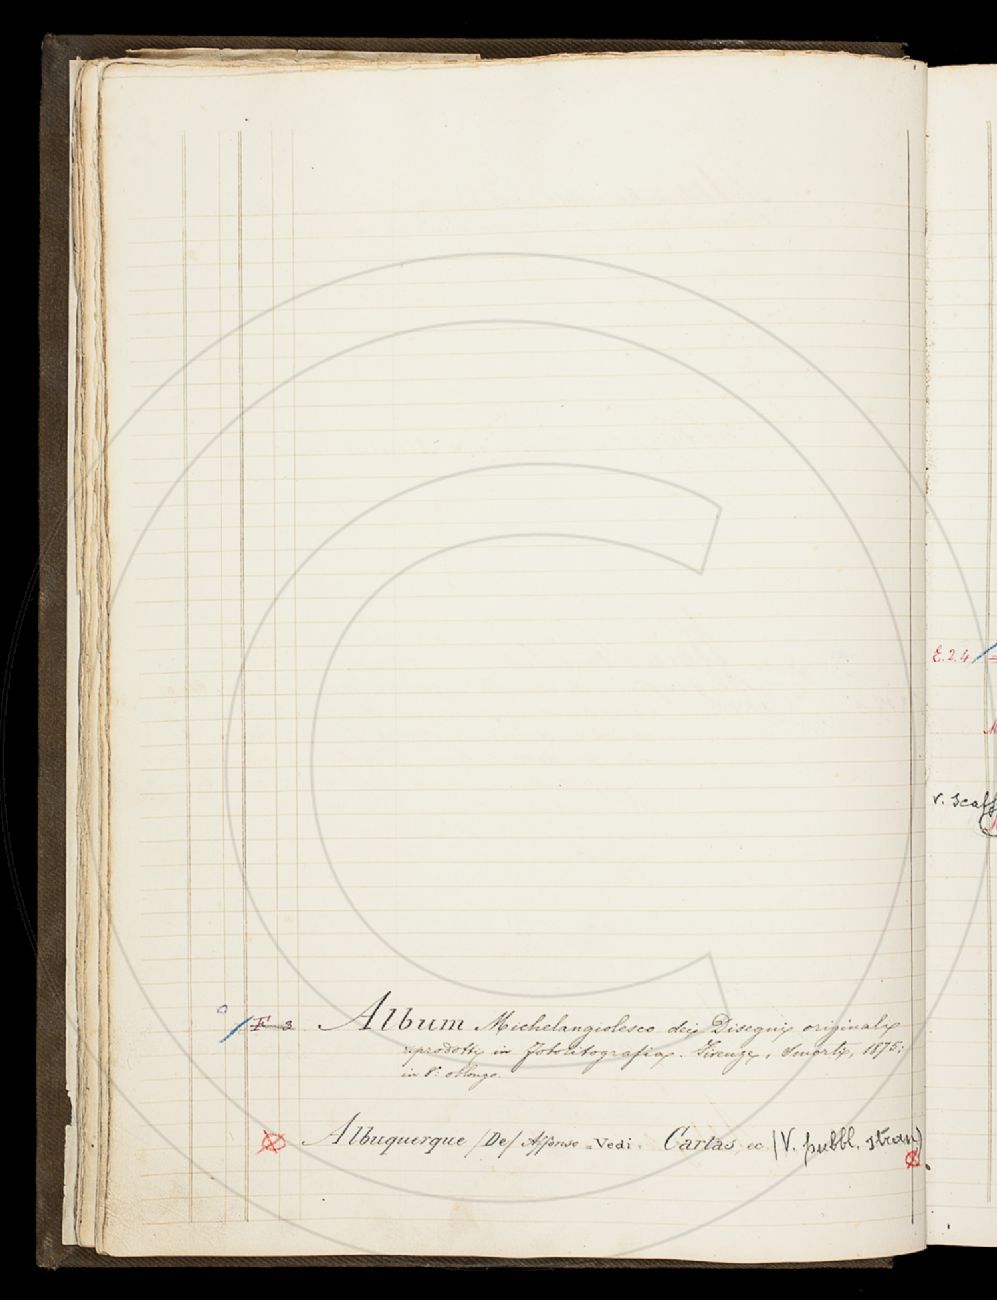 F 3 Album Michelangiolesco dei Disegni originali
riprodotti in fotolitografia. Firenze, Smorti, 1875;
in 8.° oblongo.
Albuquerque (De) Alfonso - Vedi. Cartas, ec (V. pubbl. stran)
E. 2. 4
v. scaff